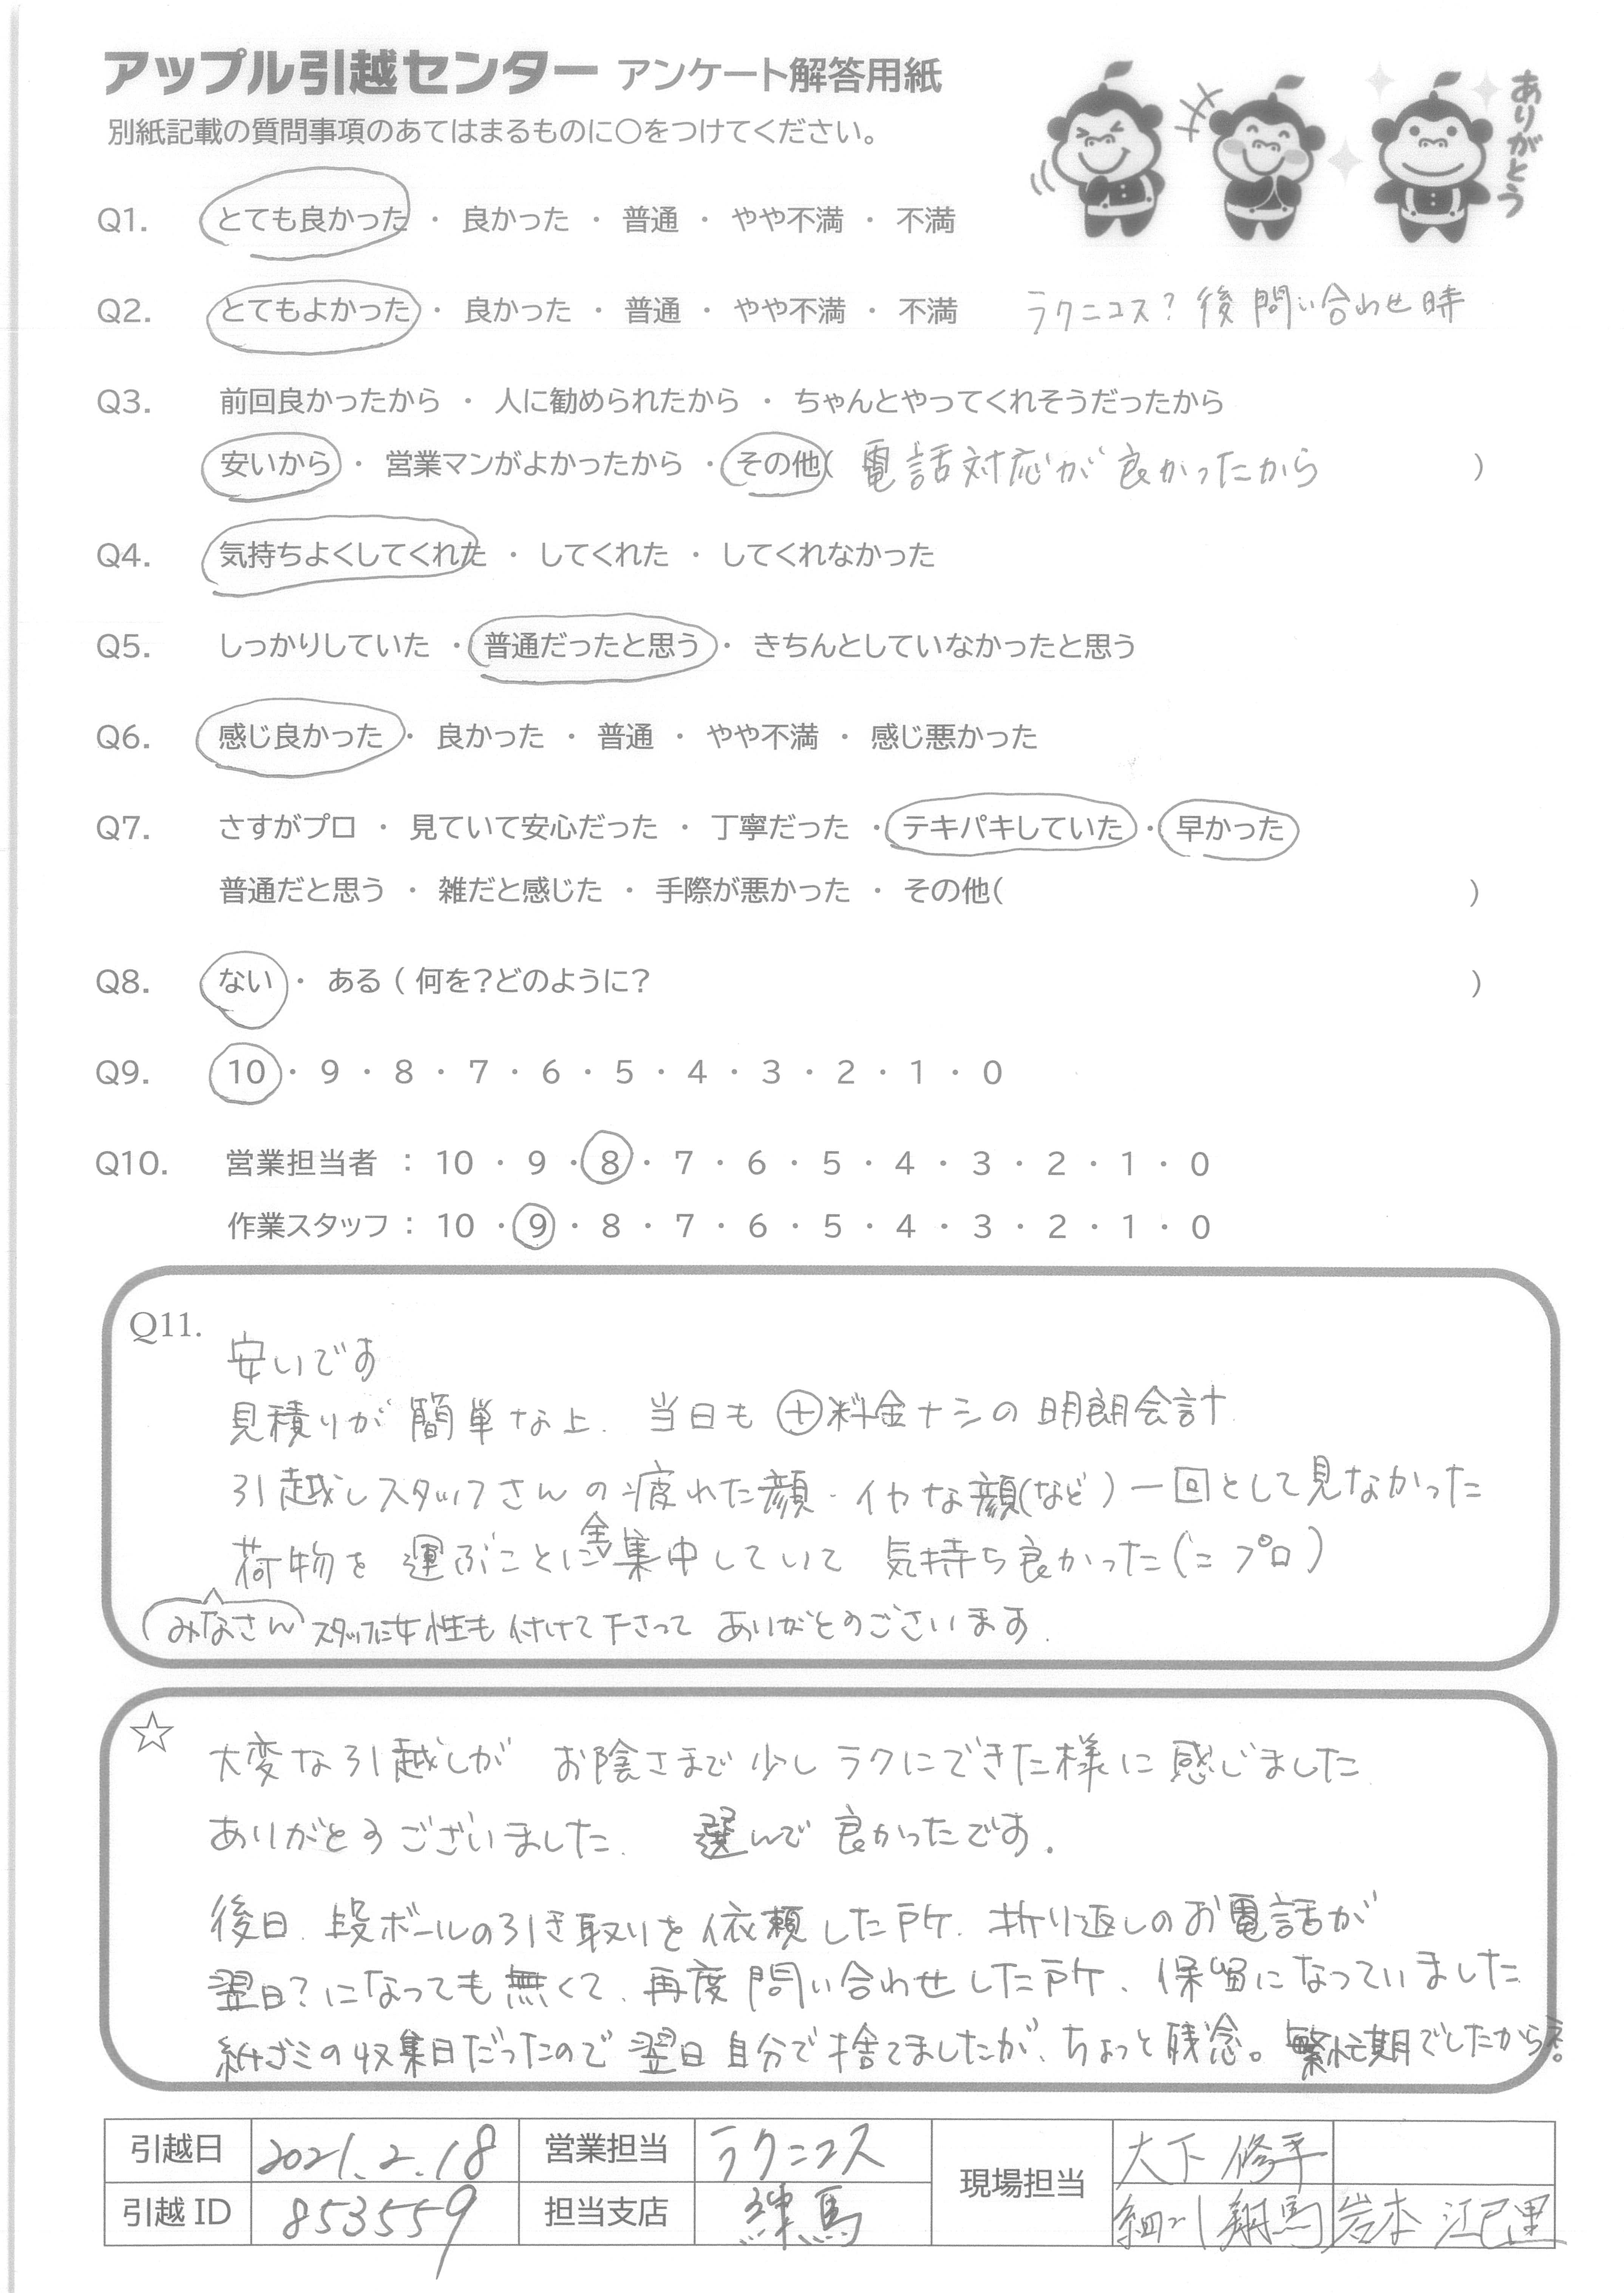 アップル引越センター アンケート解答用紙
別紙記載の質問事項のあてはまるものに○をつけてください。
ありがとう
Q1. とても良かった ・ 良かった ・ 普通 ・ やや不満 ・ 不満
Q2. とてもよかった ・ 良かった ・ 普通 ・ やや不満 ・ 不満 ラクニコス？後 問い合わせ時
Q3. 前回良かったから ・ 人に勧められたから ・ ちゃんとやってくれそうだったから
安いから ・ 営業マンがよかったから ・ その他( 電話対応が良かったから )
Q4. 気持ちよくしてくれた ・ してくれた ・ してくれなかった
Q5. しっかりしていた ・ 普通だったと思う ・ きちんとしていなかったと思う
Q6. 感じ良かった ・ 良かった ・ 普通 ・ やや不満 ・ 感じ悪かった
Q7. さすがプロ ・ 見ていて安心だった ・ 丁寧だった ・ テキパキしていた ・ 早かった
普通だと思う ・ 雑だと感じた ・ 手際が悪かった ・ その他( )
Q8. ない ・ ある ( 何を？どのように？ )
Q9. 10 ・ 9 ・ 8 ・ 7 ・ 6 ・ 5 ・ 4 ・ 3 ・ 2 ・ 1 ・ 0
Q10. 営業担当者 ： 10 ・ 9 ・ 8 ・ 7 ・ 6 ・ 5 ・ 4 ・ 3 ・ 2 ・ 1 ・ 0
作業スタッフ ： 10 ・ 9 ・ 8 ・ 7 ・ 6 ・ 5 ・ 4 ・ 3 ・ 2 ・ 1 ・ 0
Q11. 安いです
見積りが簡単な上、当日も⊕料金ナシの明朗会計
引越しスタッフさんの疲れた顔・イヤな顔(など)一回として見なかった
荷物を運ぶことに全集中していて 気持ち良かった(＝プロ)
みなさん スタッフに女性も付けて下さって ありがとうございます.
☆ 大変な引越しが お陰さまで少しラクにできた様に感じました
ありがとうございました. 選んで良かったです.
後日、段ボールの引き取りを依頼した所、折り返しのお電話が
翌日？になっても無くて、再度問い合わせした所、保留になっていました
紙ゴミの収集日だったので翌日自分で捨てましたが、ちょっと残念。繁忙期でしたからネ。
引越日 2021.2.18 営業担当 ラクニコス 現場担当 大下 修平
引越ID 853559 担当支店 練馬 翔馬 岩本 江巳里